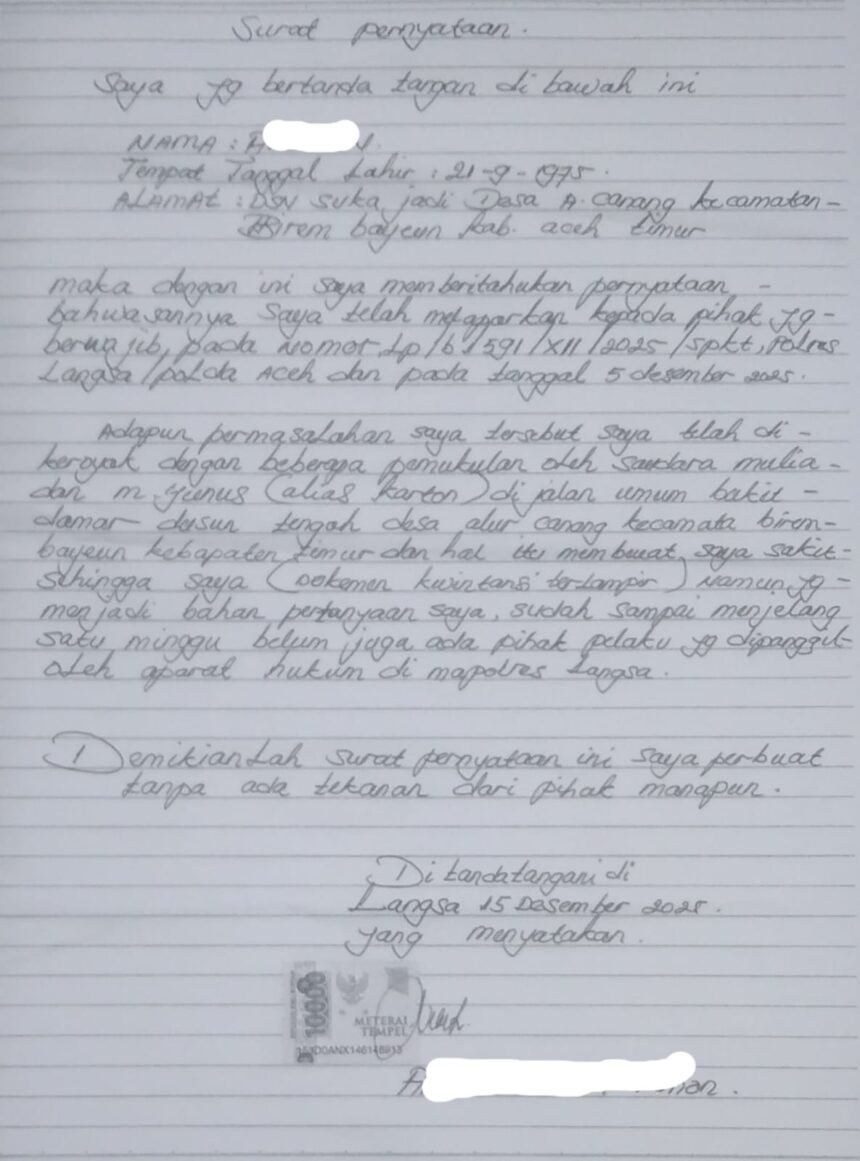 Surat pernyataan.
Saya yg bertanda tangan di bawah ini
NAMA : A
Tempat Tanggal Lahir : 21-9-1975.
ALAMAt : DSN suka jadi Desa A. canang kecamatan-
Birem bayeun kab. aceh timur
maka dengan ini saya memberitahukan pernyataan -
bahwasannya saya telah melaporkan kepada pihak yg-
berwajib, pada Nomor, Lp/b/591/XII/2025/Spkt, Polres
Langsa/polda Aceh dan pada tanggal 5 desember 2025.
Adapun permasalahan saya tersebut saya telah di-
keroyok dengan beberapa pemukulan oleh saudara mulia-
dan m. yunus (alias karton) di jalan umum bakit-
damar dusun tengah desa alur canang kecamata birem-
bayeun kebapaten timur dan hal itu membuat saya sakit-
sehingga saya (Dokemen kwintansi ter-lampir) Namun yg-
menjadi bahan pertanyaan saya, sudah sampai menjelang
satu minggu belum juga ada pihak pelaku yg dipanggil-
oleh aparat hukum di mapolres Langsa.
Demikianlah surat pernyataan ini saya perbuat
tanpa ada tekanan dari pihak manapun.
Di tandatangani di
Langsa 15 Desember 2025.
yang menyatakan.
10000
METERAI
TEMPEL